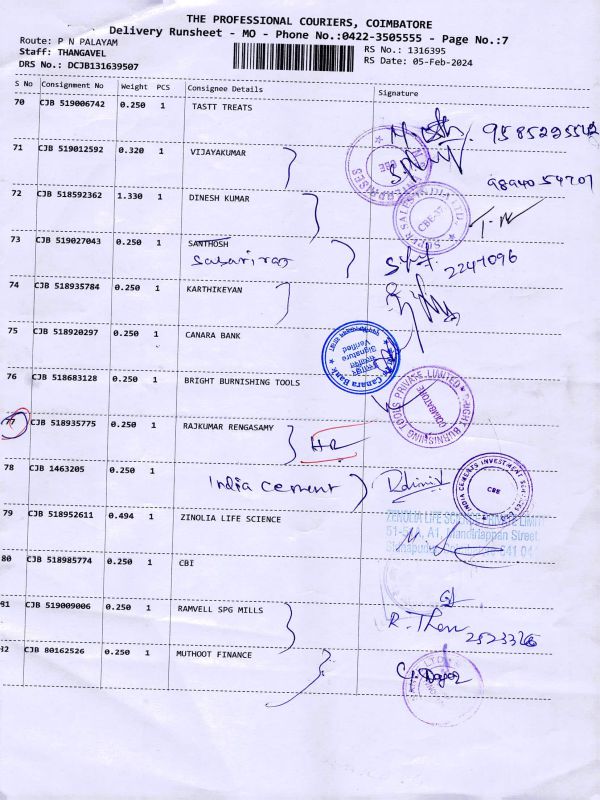 THE PROFESSIONAL COURIERS, COIMBATORE
Delivery Runsheet - MO - Phone No.:0422-3505555 - Page No.:7
Route: P N PALAYAM
RS No.: 1316395
Staff: THANGAVEL
RS Date: 05-Feb-2024
DRS No.: DCJB131639507
S No Consignment No Weight PCS Consignee Details Signature
70 CJB 519006742 0.250 1 TASTT TREATS
71 CJB 519012592 0.320 1 VIJAYAKUMAR
9894054701
72 CJB 518592362 1.330 1 DINESH KUMAR
73 CJB 519027043 0.250 1 SANTHOSH
2247096
74 CJB 518935784 0.250 1 KARTHIKEYAN
75 CJB 518920297 0.250 1 CANARA BANK
Canara Bank
Signature
Verified
76 CJB 518683128 0.250 1 BRIGHT BURNISHING TOOLS
BRIGHT BURNISHING TOOLS PRIVATE LIMITED
COIMBATORE
77 CJB 518935775 0.250 1 RAJKUMAR RENGASAMY
78 CJB 1463205 0.250 1 India cement
INDIA CEMENTS INVESTMENT SERVICES
CBE
79 CJB 518952611 0.494 1 ZINOLIA LIFE SCIENCE
80 CJB 518985774 0.250 1 CBI
81 CJB 519009006 0.250 1 RAMVELL SPG MILLS
82 CJB 80162526 0.250 1 MUTHOOT FINANCE